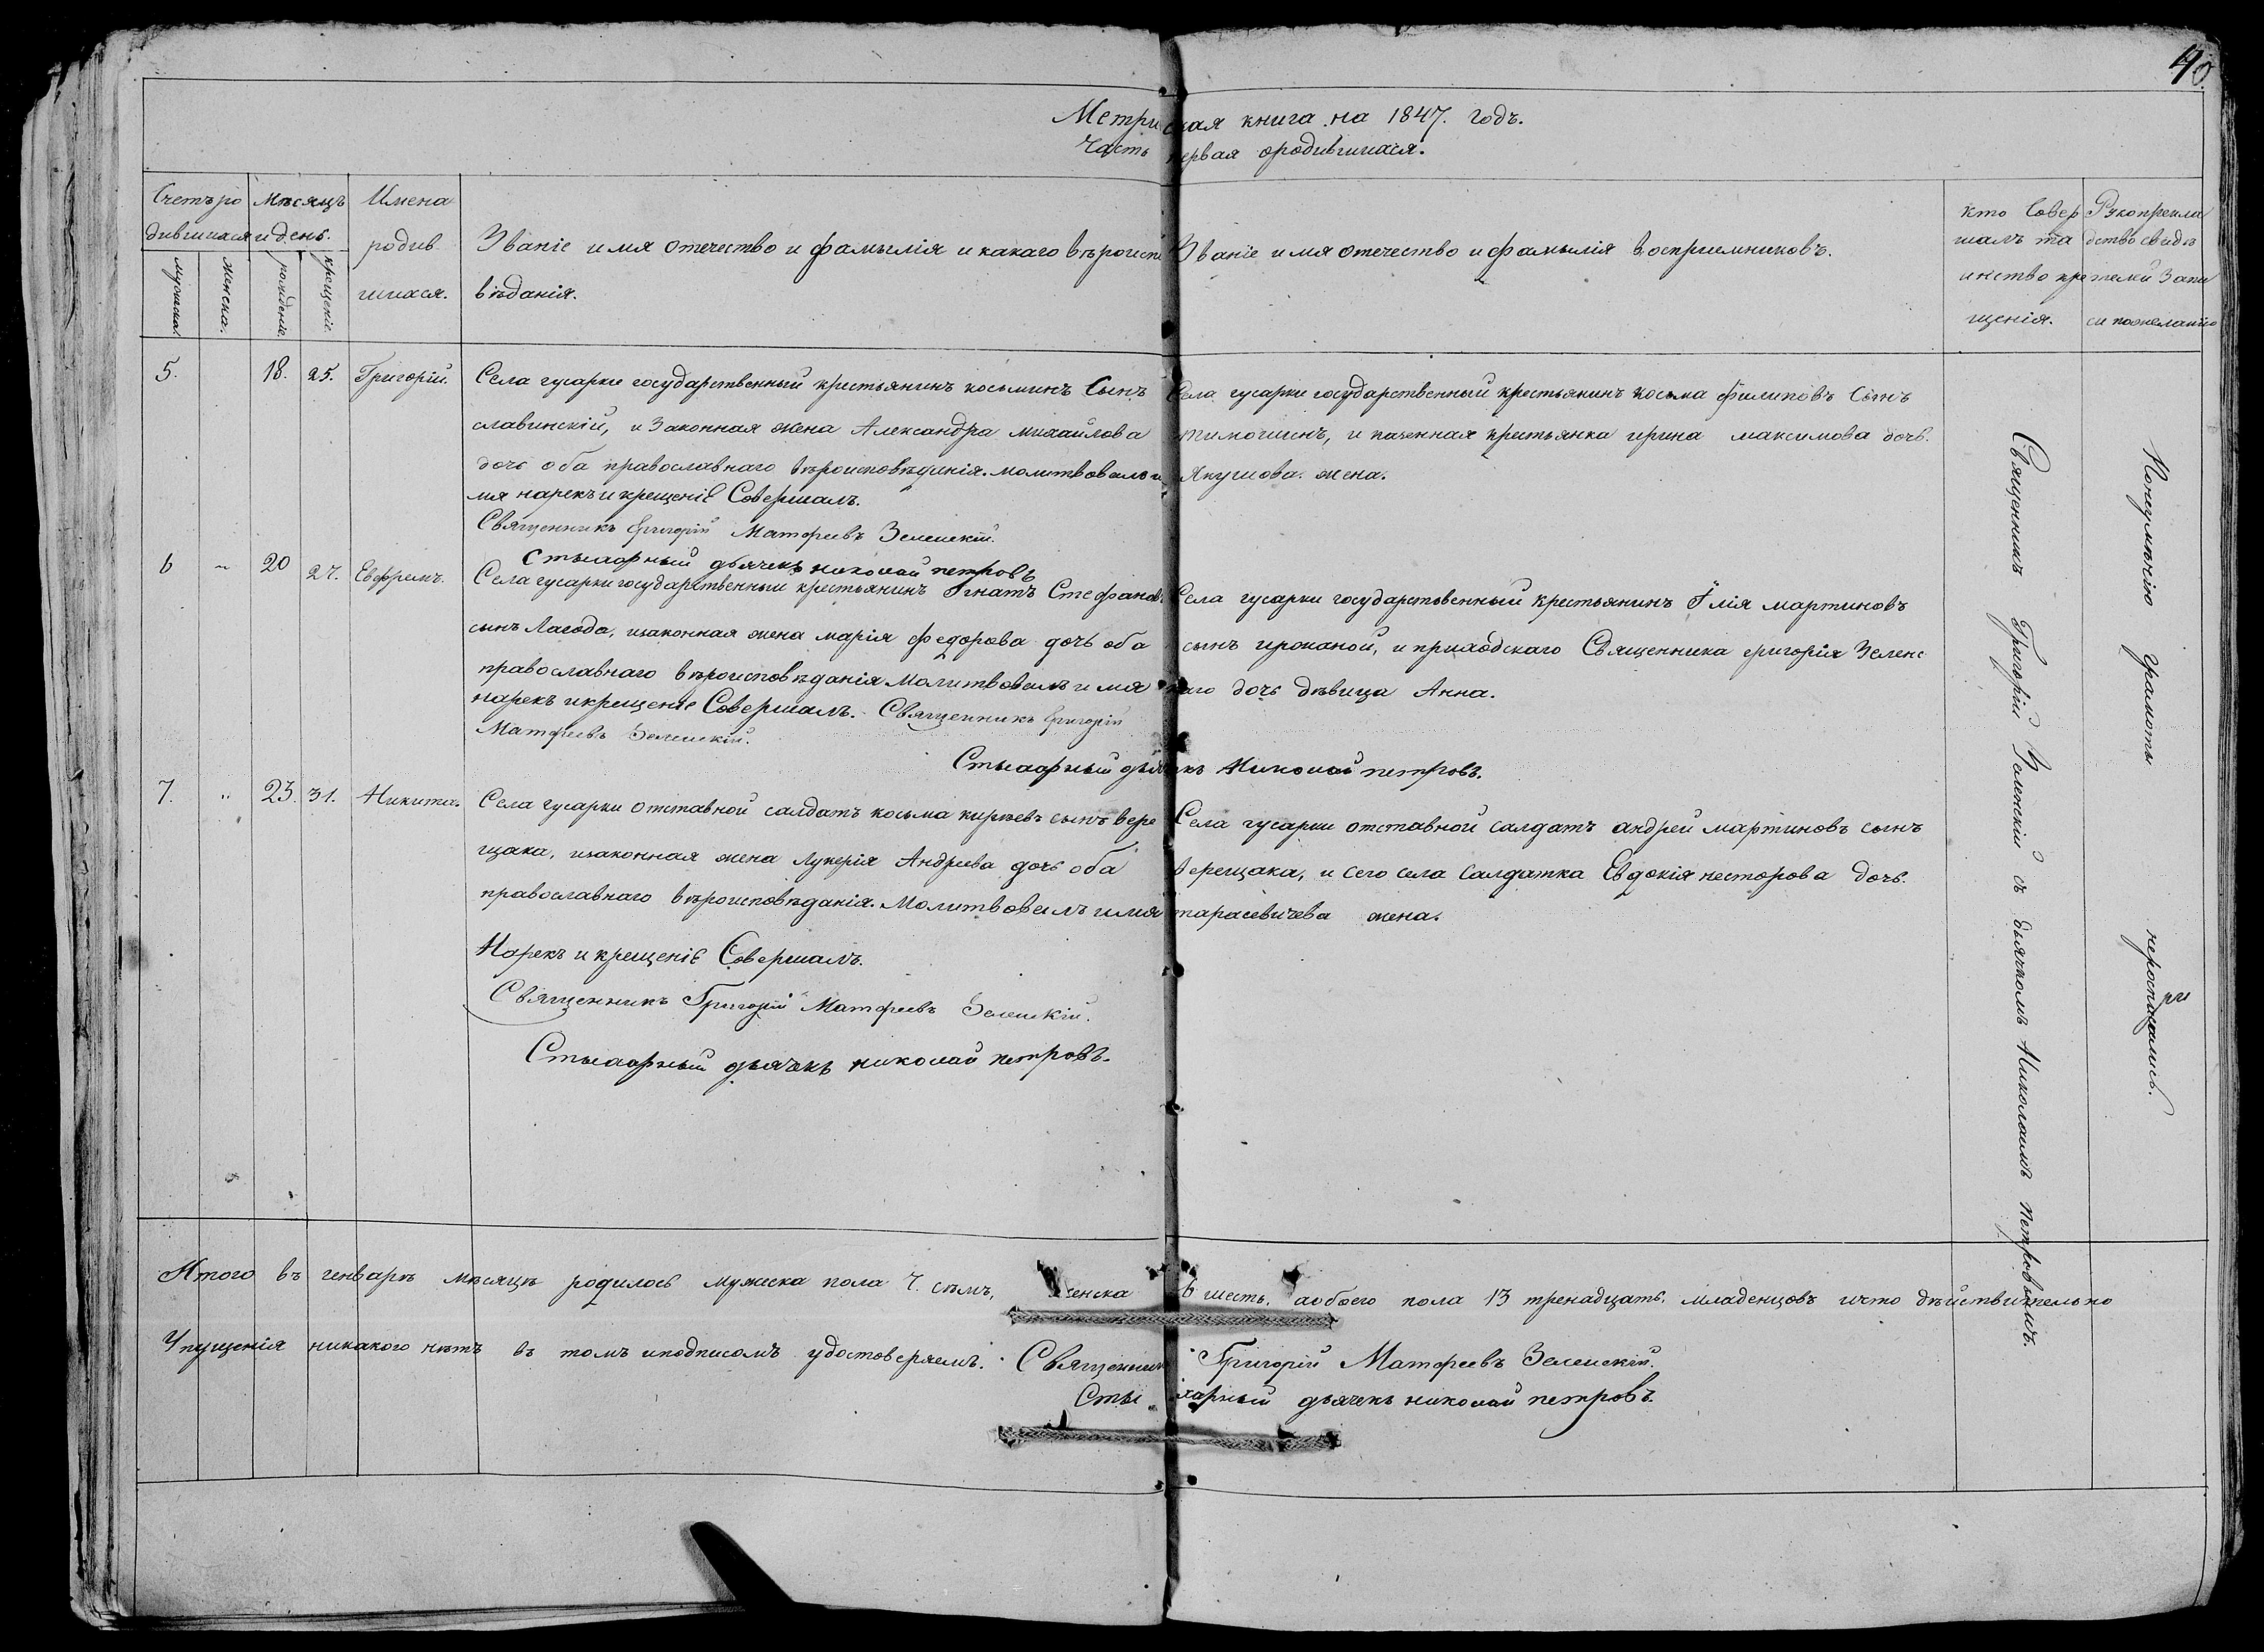 40.
Метри ская книга на 1847. годъ.
Часть первая ородившихся.
Счетъ ро
дившихся
мужска.
женска.
Мѣсяцъ
и день.
рожденіе.
крещеніе.
Имена
родив
шихся.
Званіе имя отечество и фамылія и какаго вѣроиспо
вѣданія.
Званіе имя отечество и фамылія воспріемниковъ.
Кто Совер
шалъ та
инство кре
щенія.
Рукоприкла
дство свидѣ
телей Запи
си пожеланію
5. 18. 25. Григорій.
Села гусарки государственный крестьянинъ косьминъ Сынъ
славинскій, и Законная жена Александра михаилова
дочь оба православнаго вѣроисповѣданія. молитвовалъ и
мя нарекъ и крещеніе Совершалъ.
Священникъ Григорій Матфеевъ Зеленскій.
Стыхарный дьячекъ николай петровъ
Села гусарки государственный крестьянинъ косьма филиповъ Сынъ
тимошинъ, и крестьянка ирина максимова дочь.
Якушова. жена.
6 " 20 27. Евфремъ.
Села гусарки государственный крестьянинъ Игнатъ Стефановъ
сынъ Лагода, изаконная жена марія федорова дочь оба
православнаго вѣроисповѣданія Молитвовалъ имя
нарекъ икрещеніе Совершалъ. Священникъ Григорій
Матфеевъ Зеленскій.
Стыхарный дьячекъ Николай петровъ.
Села гусарки государственный крестьянинъ Илія мартиновъ
сынъ и приходскаго Священника григорія Зеленс
каго дочь дѣвица Анна.
7. " 23. 31. Никита.
Села гусарки отставной салдатъ косьма кирѣевъ сынъ вере
щака, изаконная жена Лукерія Андреева дочь оба
православнаго вѣроисповѣданія. Молитвовалъ имя
Нарекъ и крещеніе Совершалъ.
Священникъ Григорій Матфеевъ Зеленскій.
Стыхарный дьячекъ николай петровъ.
Села гусарки отставной салдатъ андрей мартиновъ сынъ
верещака, и сего села Салдатка Евдокія несторова дочь.
тарасевичева жена.
Священникъ Григорій Зеленскій съ дьячкомъ Николаемъ петровымъ.
Понеумѣнію грамоты неросписались.
Итого въ генварѣ мѣсяцѣ родилось мужеска пола 7. сѣмъ, Женска 6 шесть. аобоего пола 13 тренадцать. младенцовъ ичто дѣйствительно
Упущенія никакого нѣтъ въ томъ иподписомъ удостоверяемъ. Священник Григорій Матфеевъ Зеленскій.
Стыхарный дьячекъ николай петровъ.